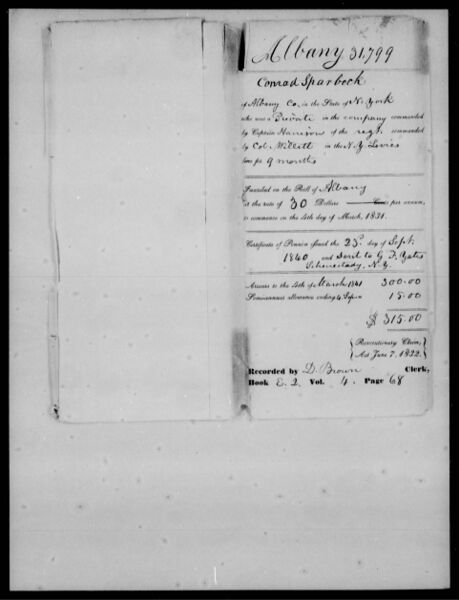 Albany 31,799
Conrad Sparbeck
of Albany Co. in the State of N. York
who was a Private in the company commanded
by Captain Harrison of the regt. commanded
by Col. Willett in the N.Y. Levies
for 9 months
Inscribed on the Roll of Albany
at the rate of 30 Dollars Cents per annum,
to commence on the 4th day of March, 1831.
Certificate of Pension issued the 23d. day of Sept.
1840 and sent to G. F. Yates
Schenectady, N.Y.
Arrears to the 4th of March 1841 300.00
Semi-annual allowance ending 4 Sep. 15.00
$ 315.00
{Revolutionary Claim,
Act June 7, 1832.}
Recorded by D. Brown Clerk,
Book E. 2 Vol. 4. Page 68